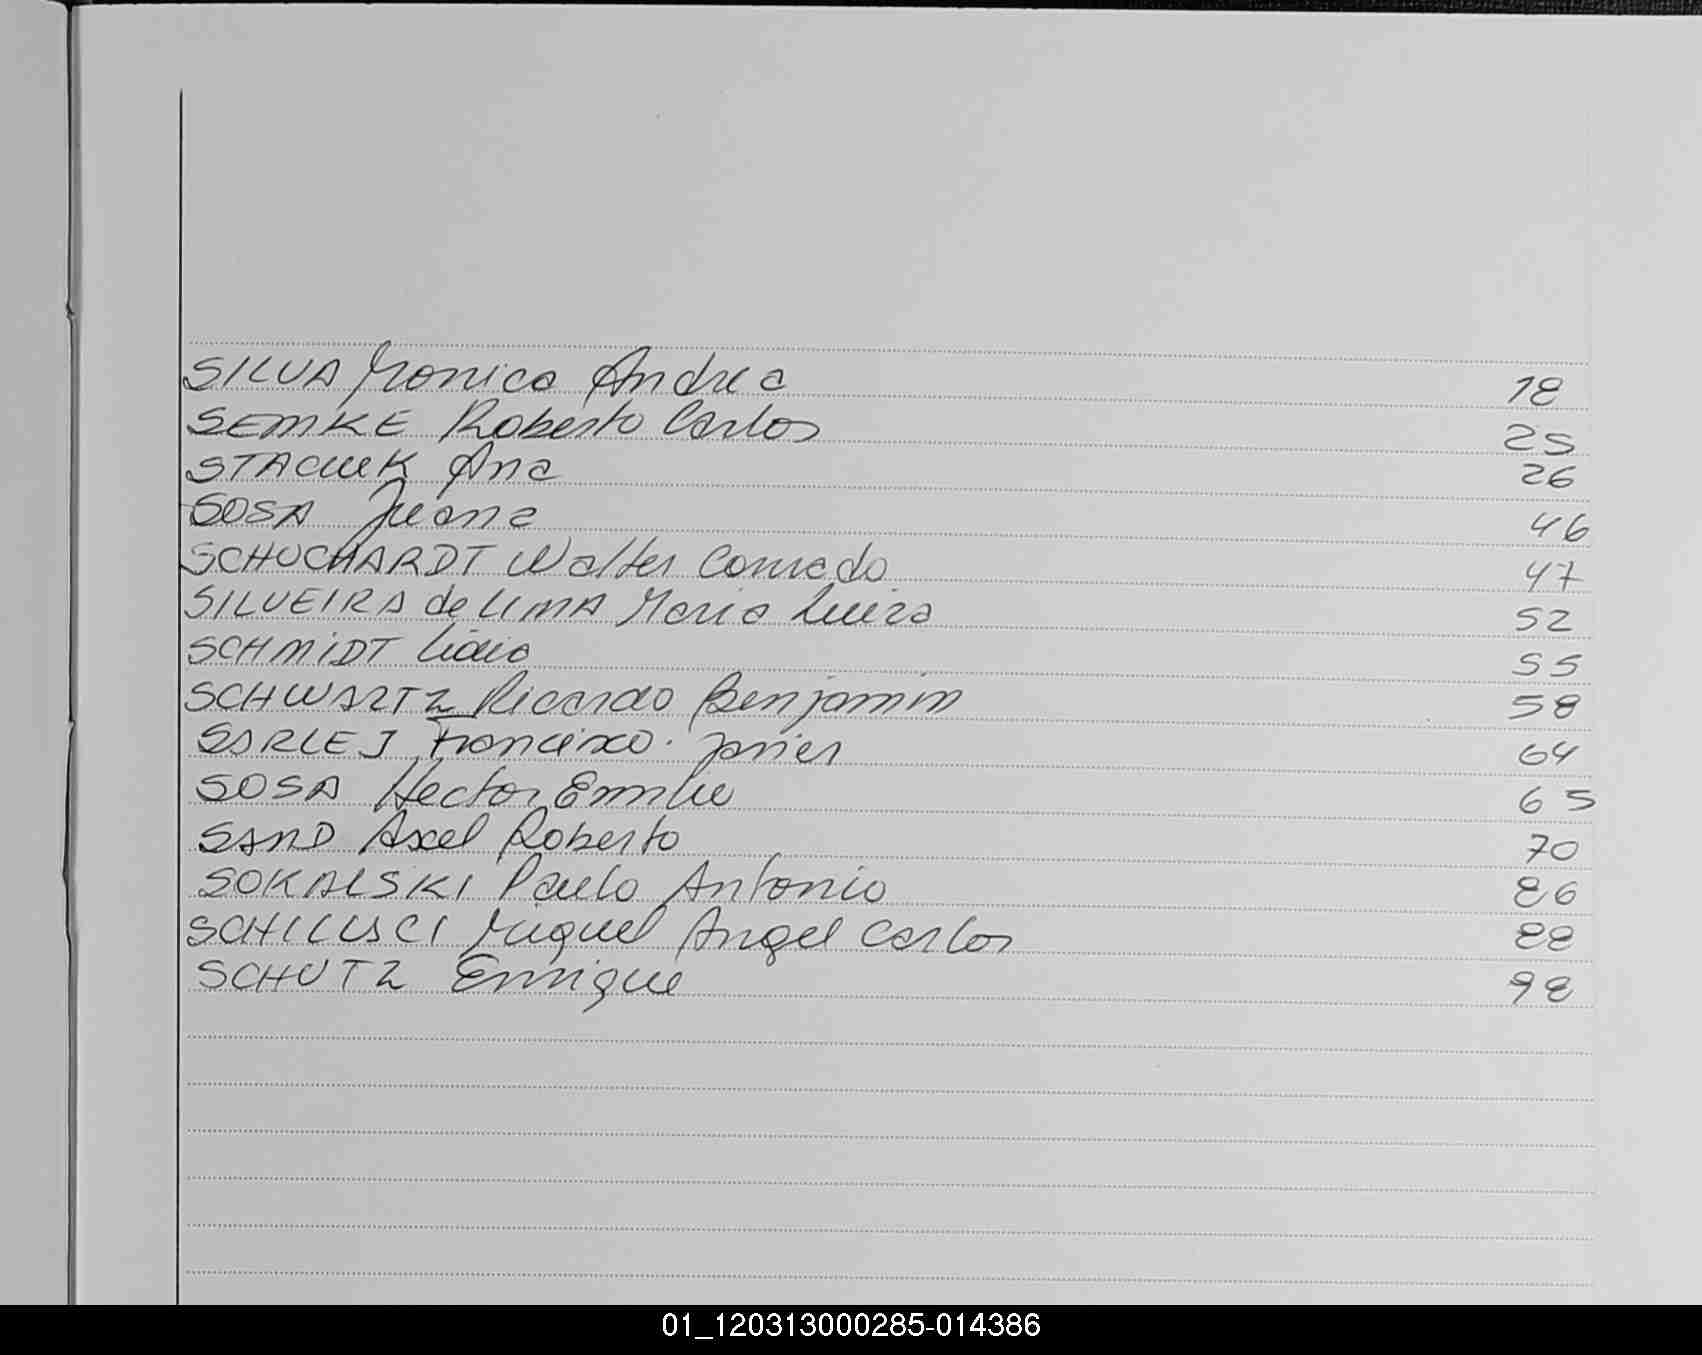 SILVA Monica Andrea 18
SEMKE Roberto Carlos 25
STACIUK Ana 26
SOSA Juana 46
SCHUCHARDT Walter Conrado 47
SILVEIRA de LIMA Maria Luiza 52
SCHMIDT 55
SCHWARTZ Ricardo Benjamin 58
SARLEJ Francisco Javier 64
SOSA Hector Emilio 65
SAND Axel Roberto 70
SOKALSKI Paulo Antonio 86
Miguel Angel Carlos 88
SCHUTZ Enrique 98
01_120313000285-014386